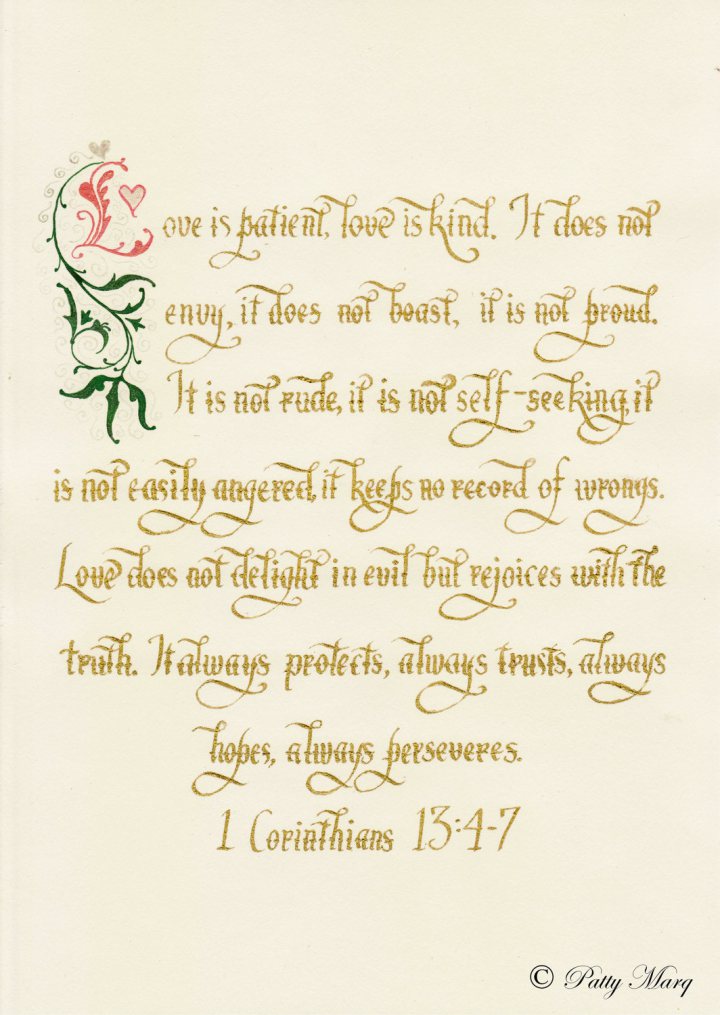 Love is patient, love is kind. It does not
envy, it does not boast, it is not proud.
It is not rude, it is not self-seeking, it
is not easily angered, it keeps no record of wrongs.
Love does not delight in evil but rejoices with the
truth. It always protects, always trusts, always
hopes, always perseveres.
1 Corinthians 13:4-7
© Patty Marq